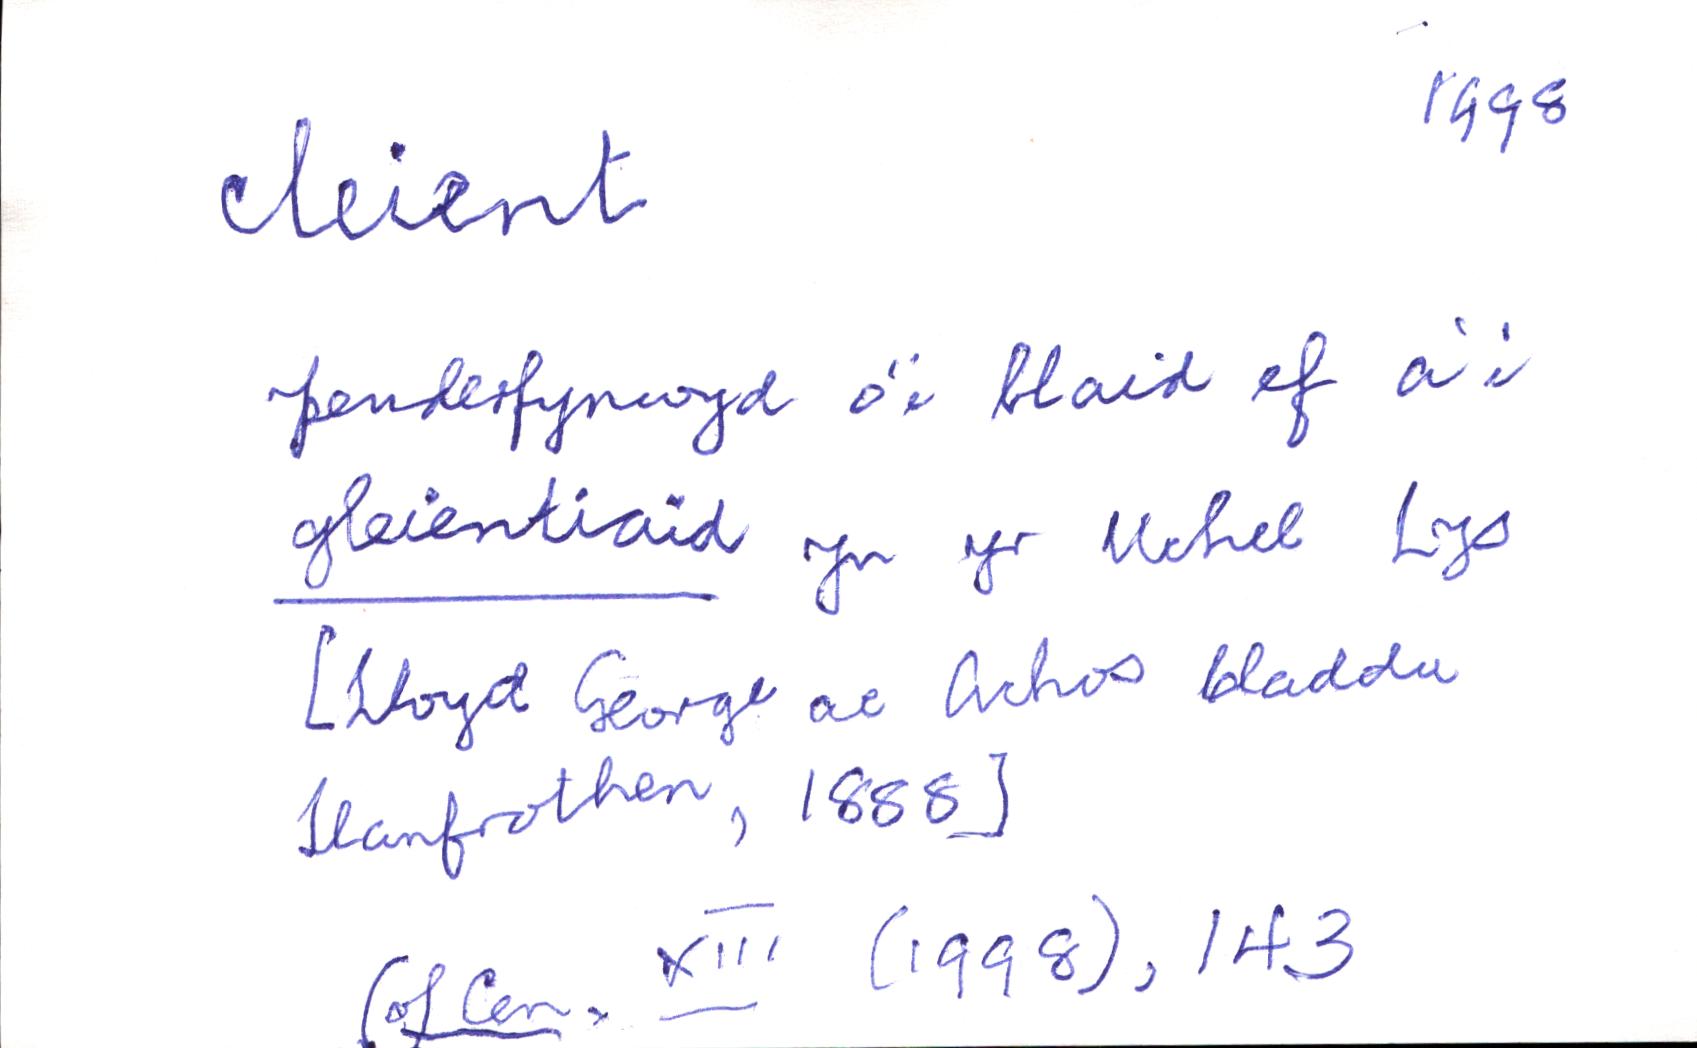 1998
cleient
penderfynwyd o'i blaid ef a'i
gleientiaid yn yr Uchel Lys
[Lloyd George ac Achos bladdu
Llanfrothen, 1888]
Cof Cen. XIII (1998), 143